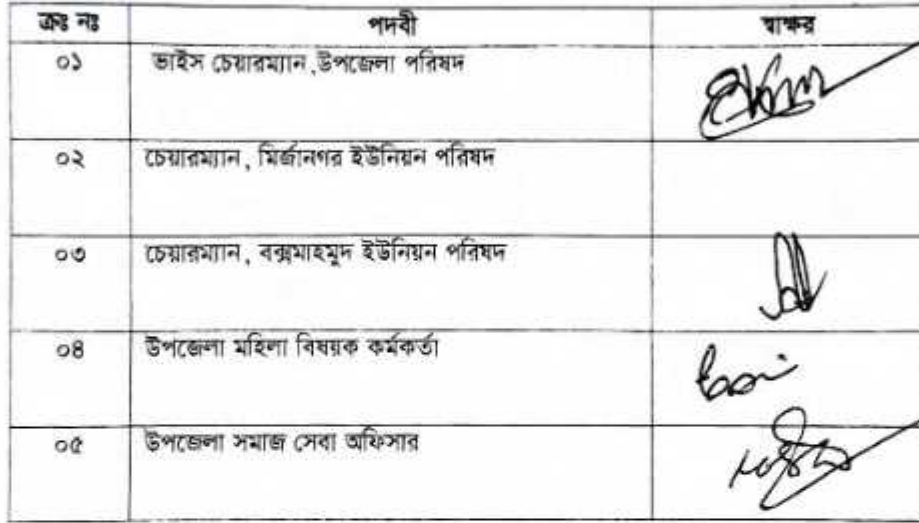 ক্রঃ নং পদবী স্বাক্ষর
০১ ভাইস চেয়ারম্যান,উপজেলা পরিষদ
০২ চেয়ারম্যান, মির্জানগর ইউনিয়ন পরিষদ
০৩ চেয়ারম্যান, বক্সমাহমুদ ইউনিয়ন পরিষদ
০৪ উপজেলা মহিলা বিষয়ক কর্মকর্তা
০৫ উপজেলা সমাজ সেবা অফিসার